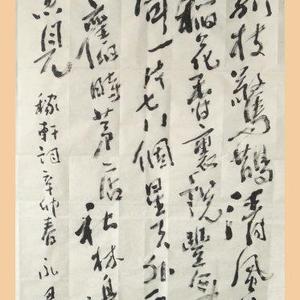 别枝驚鵲清風
稻花香裏説豐年
一片七八個星天外
舊時茅店社林
稼軒詞辛卯春永